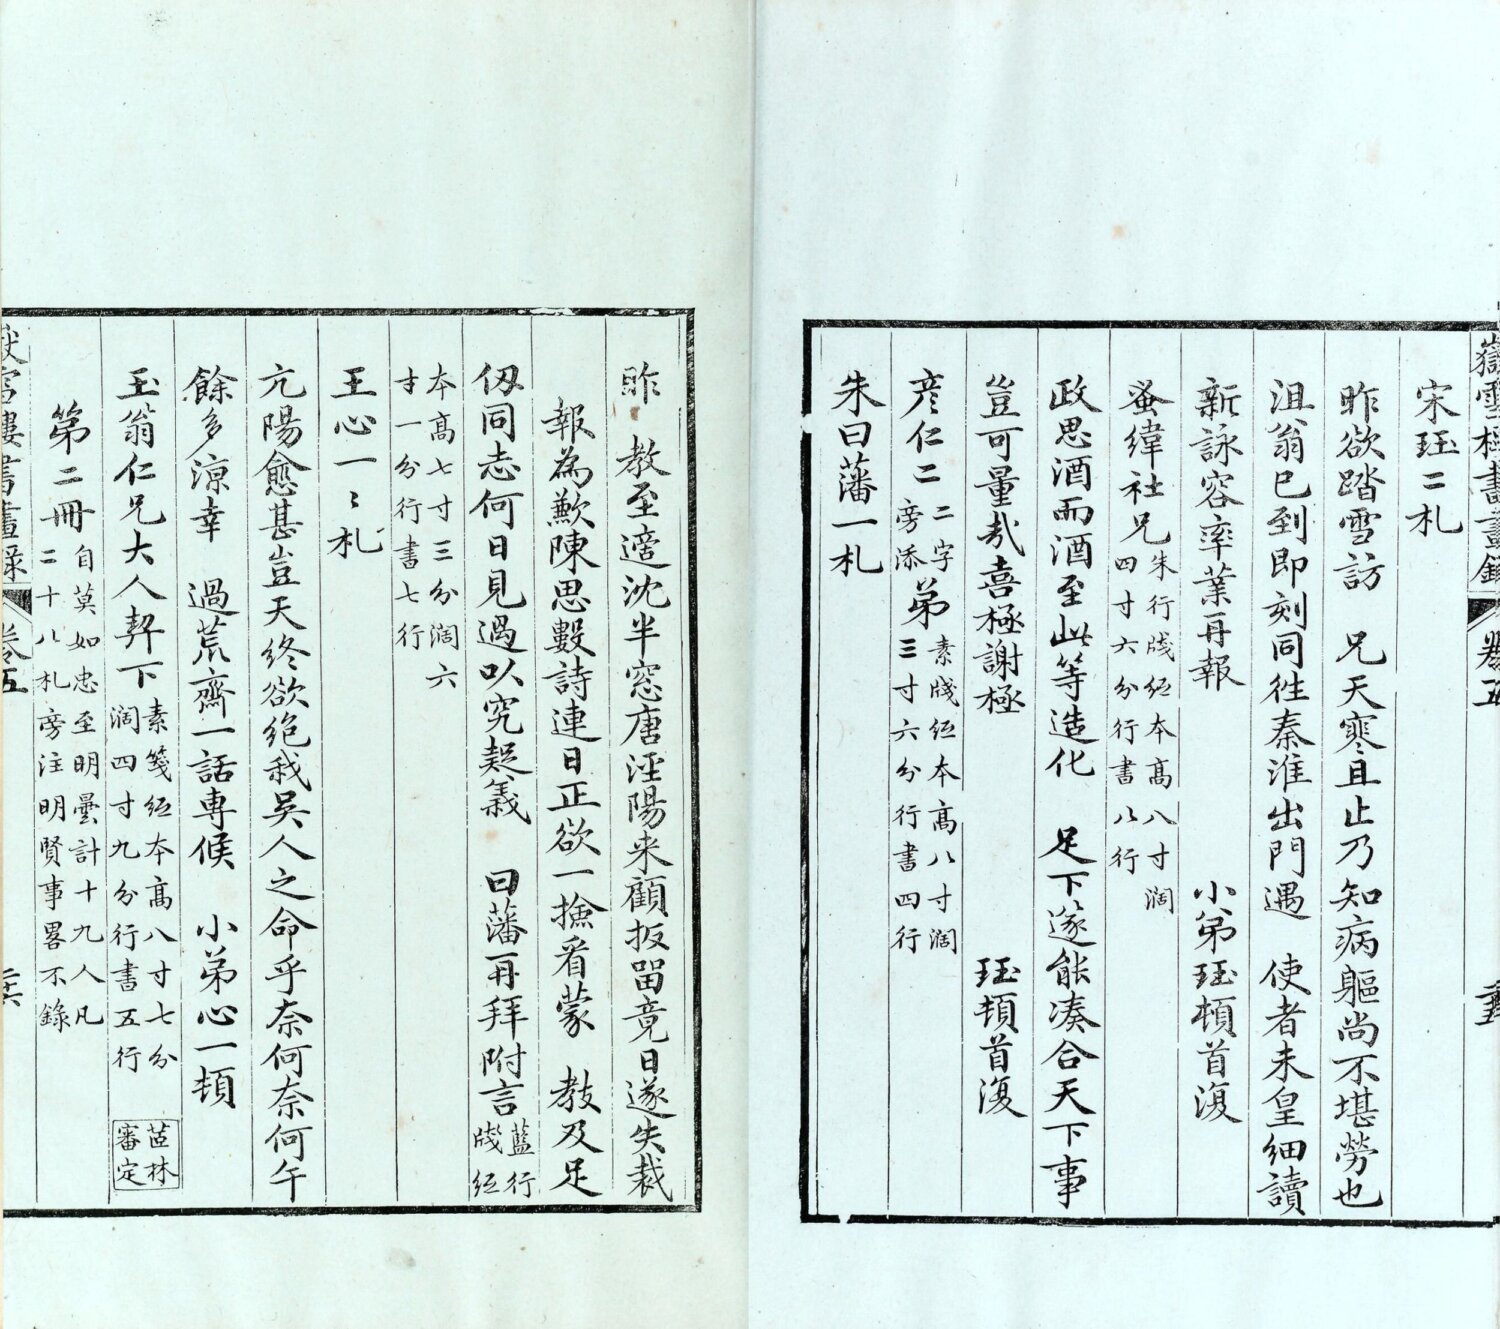 嶽雪樓書畫錄 卷五
宋珏二札
昨欲踏雪訪 兄天寒且止乃知病軀尚不堪勞也
沮翁已到即刻同往秦淮出門遇 使者未皇細讀
新詠容率業再報 小弟珏頓首復
蚤緯社兄朱行牋紙本高八寸濶
四寸六分行書八行
政思酒而酒至此等造化 足下遂能湊合天下事
豈可量哉喜極謝極 珏頓首復
彥仁二二字
旁添弟素牋紙本高八寸濶
三寸六分行書四行
朱曰藩一札
昨 教至適沈半窓唐涇陽来顧扳留竟日遂失裁
報為歉陳思數詩連日正欲一撿看蒙 教及足
仭同志何日見過以究疑義 曰藩再拜附言藍行
牋紙
本高七寸三分濶六
寸一分行書七行
王心一〻札
亢陽愈甚豈天終欲絶我吳人之命乎奈何奈何午
餘多涼幸 過荒齋一話専候 小弟心一頓
玉翁仁兄大人契下素箋紙本高八寸七分
濶四寸九分行書五行
茝林
審定
第二冊自莫如忠至明曇計十九人凡
二十八札旁注明賢事畧不錄
嶽雪樓書畫錄 卷五